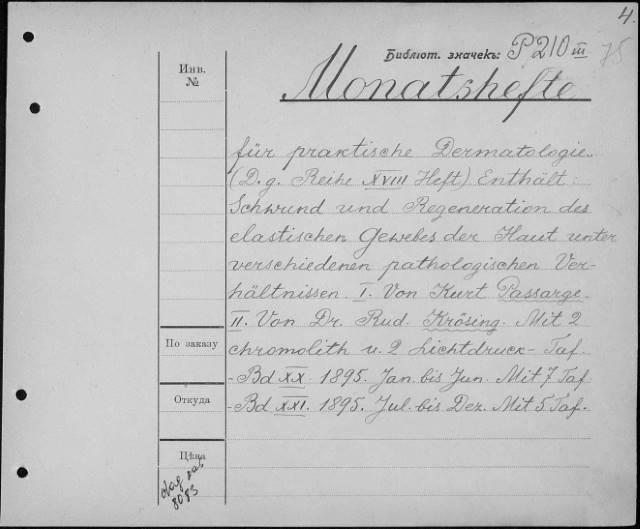 4.
Библіот. значекъ: P210 III
75
Инв.
№
Monatshefte
für praktische Dermatologie.
(D. g. Reihe XVIII Heft) Enthält:
Schwund und Regeneration des
elastischen Gewebes der Haut unter
verschiedenen pathologischen Ver-
hältnissen. I. Von Kurt Passarge.
II. Von Dr. Rud. Krösing. Mit 2
chromolith u. 2 Lichtdruck-Taf.
-Bd XX. 1895. Jan. bis Jun. Mit 7 Taf.
-Bd XXI. 1895. Jul. bis Dez. Mit 5 Taf.-
По заказу
Откуда
Цѣна
8083